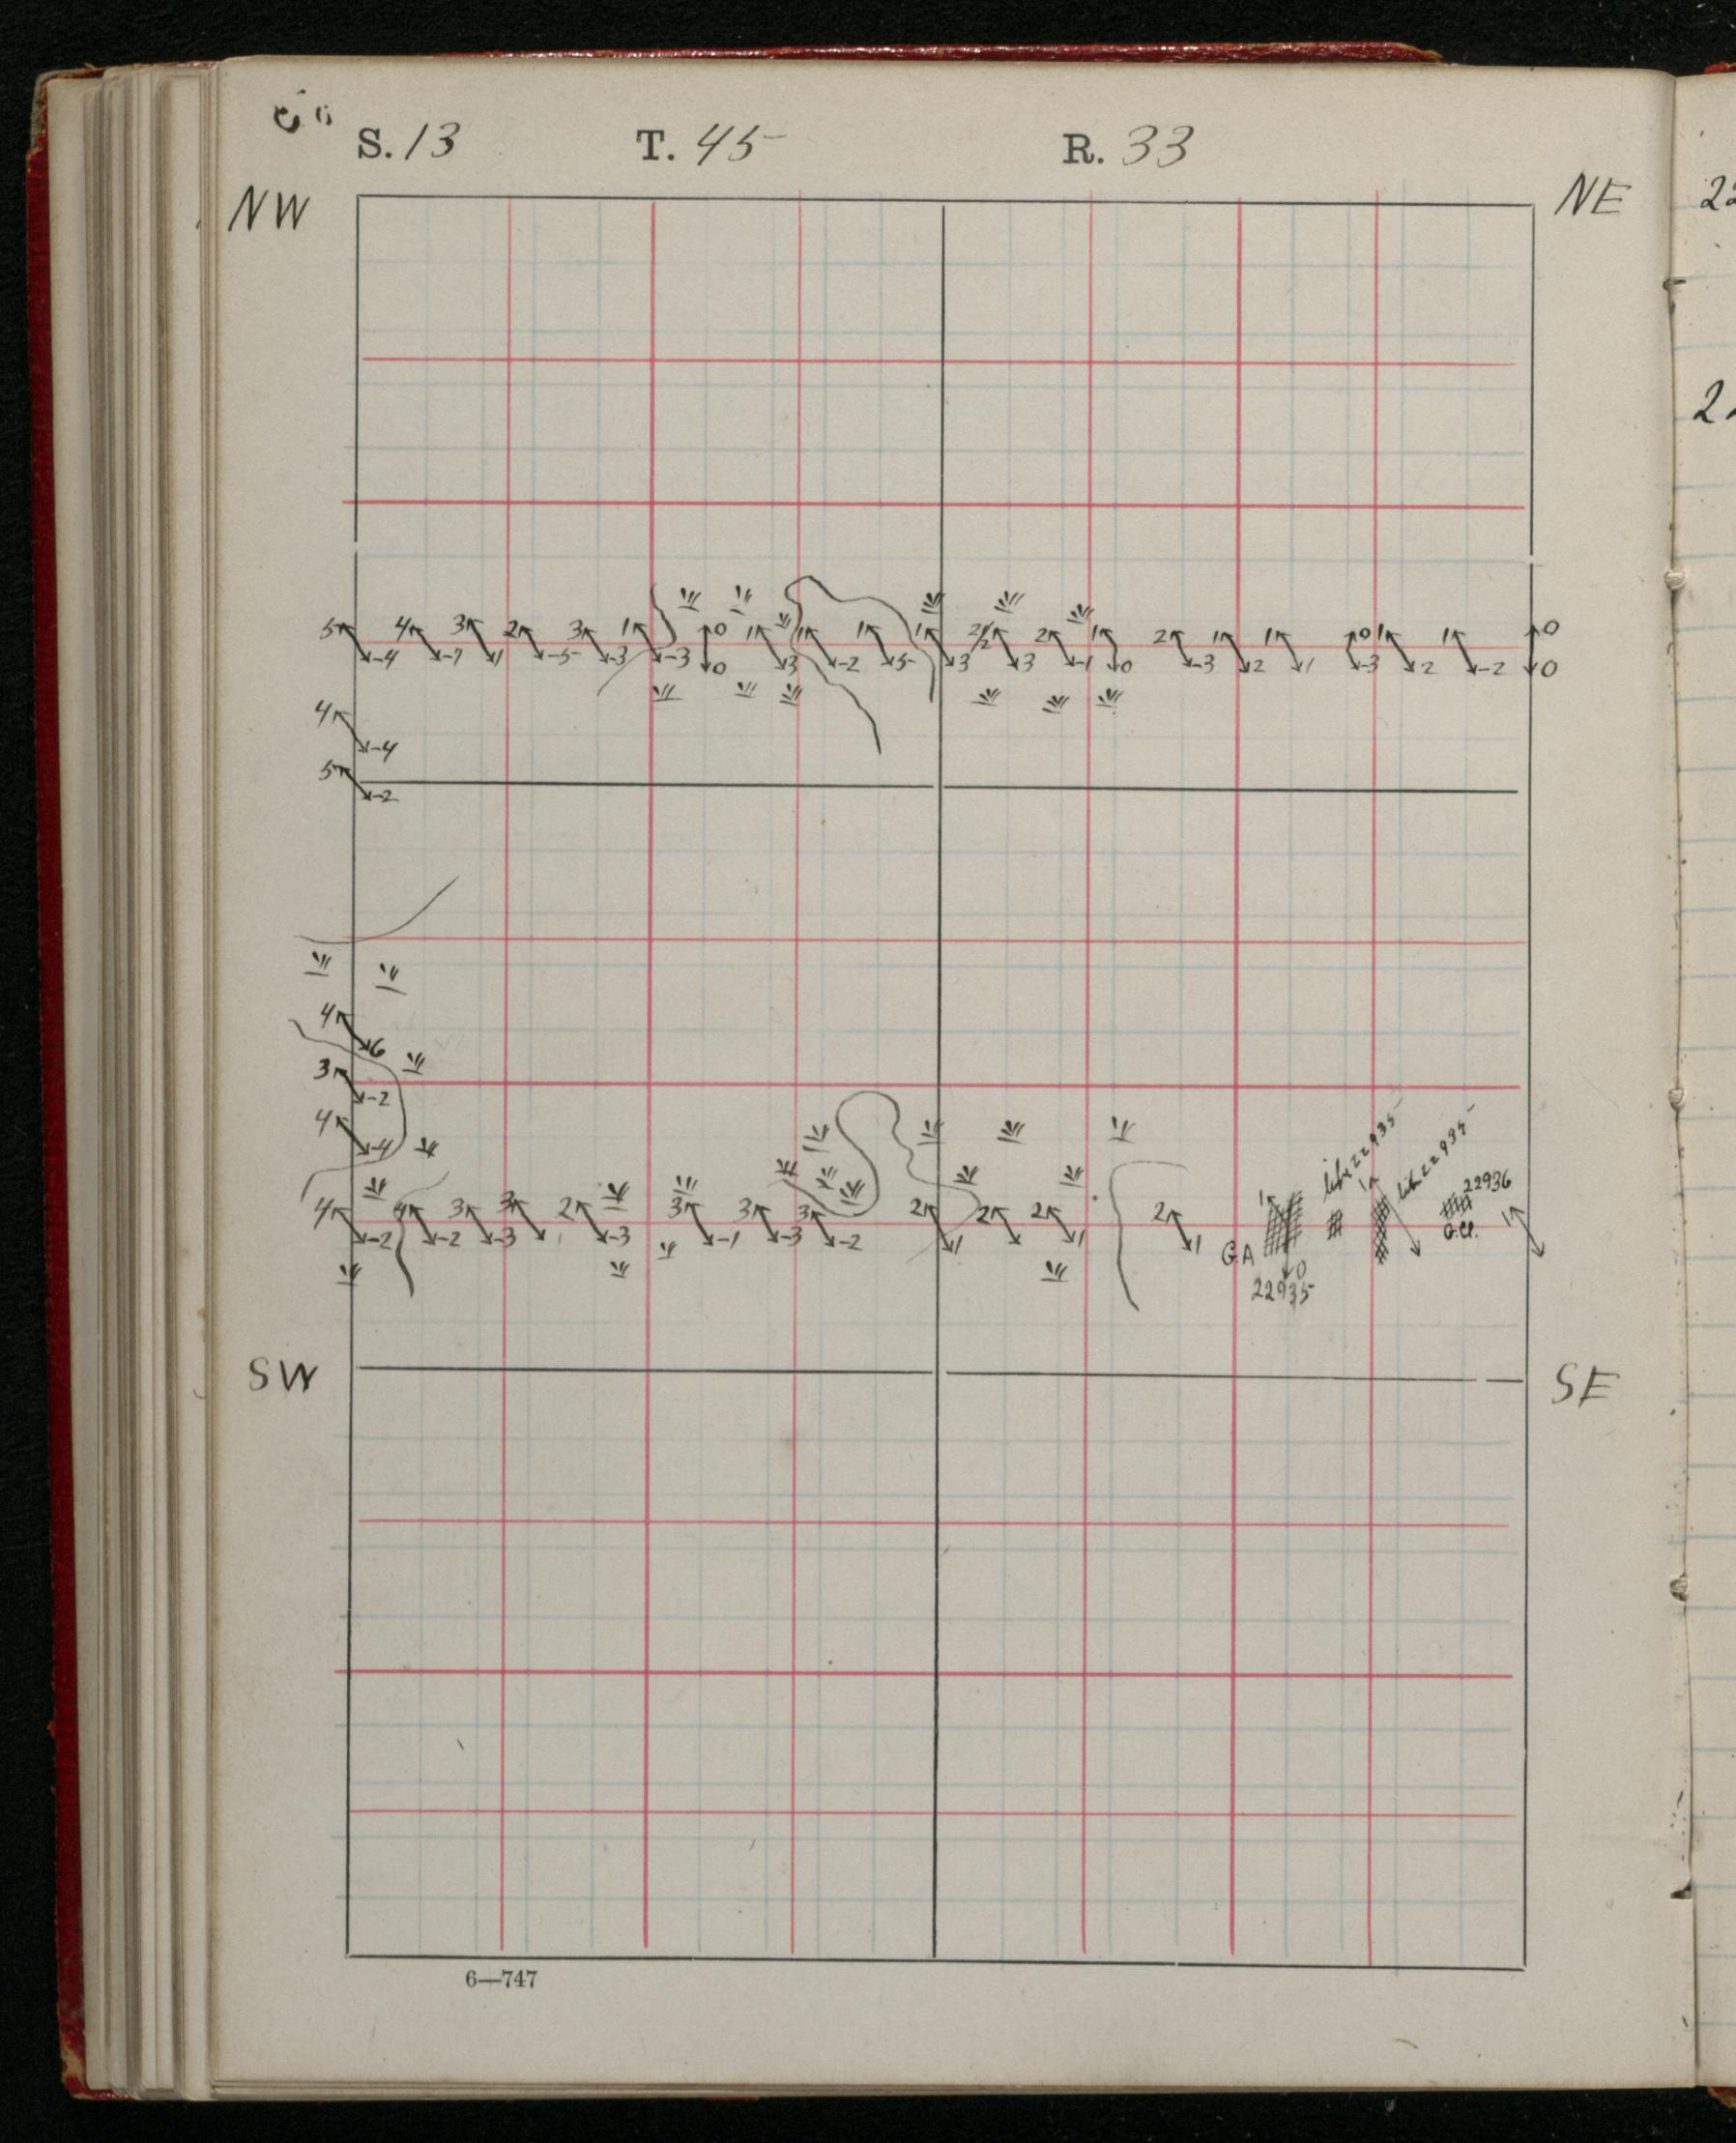 S. 13 T. 45 R. 33
NW NE
5 4 3 2 3 1 0 1 1 1 1 2 1/2 2 1 2 1 1 0 1 1 0
-4 -7 1 -5 -3 -3 0 3 -2 5 3 3 -1 0 -3 2 1 -3 2 -2 0
4
-4
5
-2
4
6
3
-2
4
-4
22935 22935
22936
4 4 3 3 2 3 3 3 2 2 2 2 1 1 1
-2 -2 -3 -3 -1 -3 -2 1 1 1 G.A 0
22935
SW SE
6—747